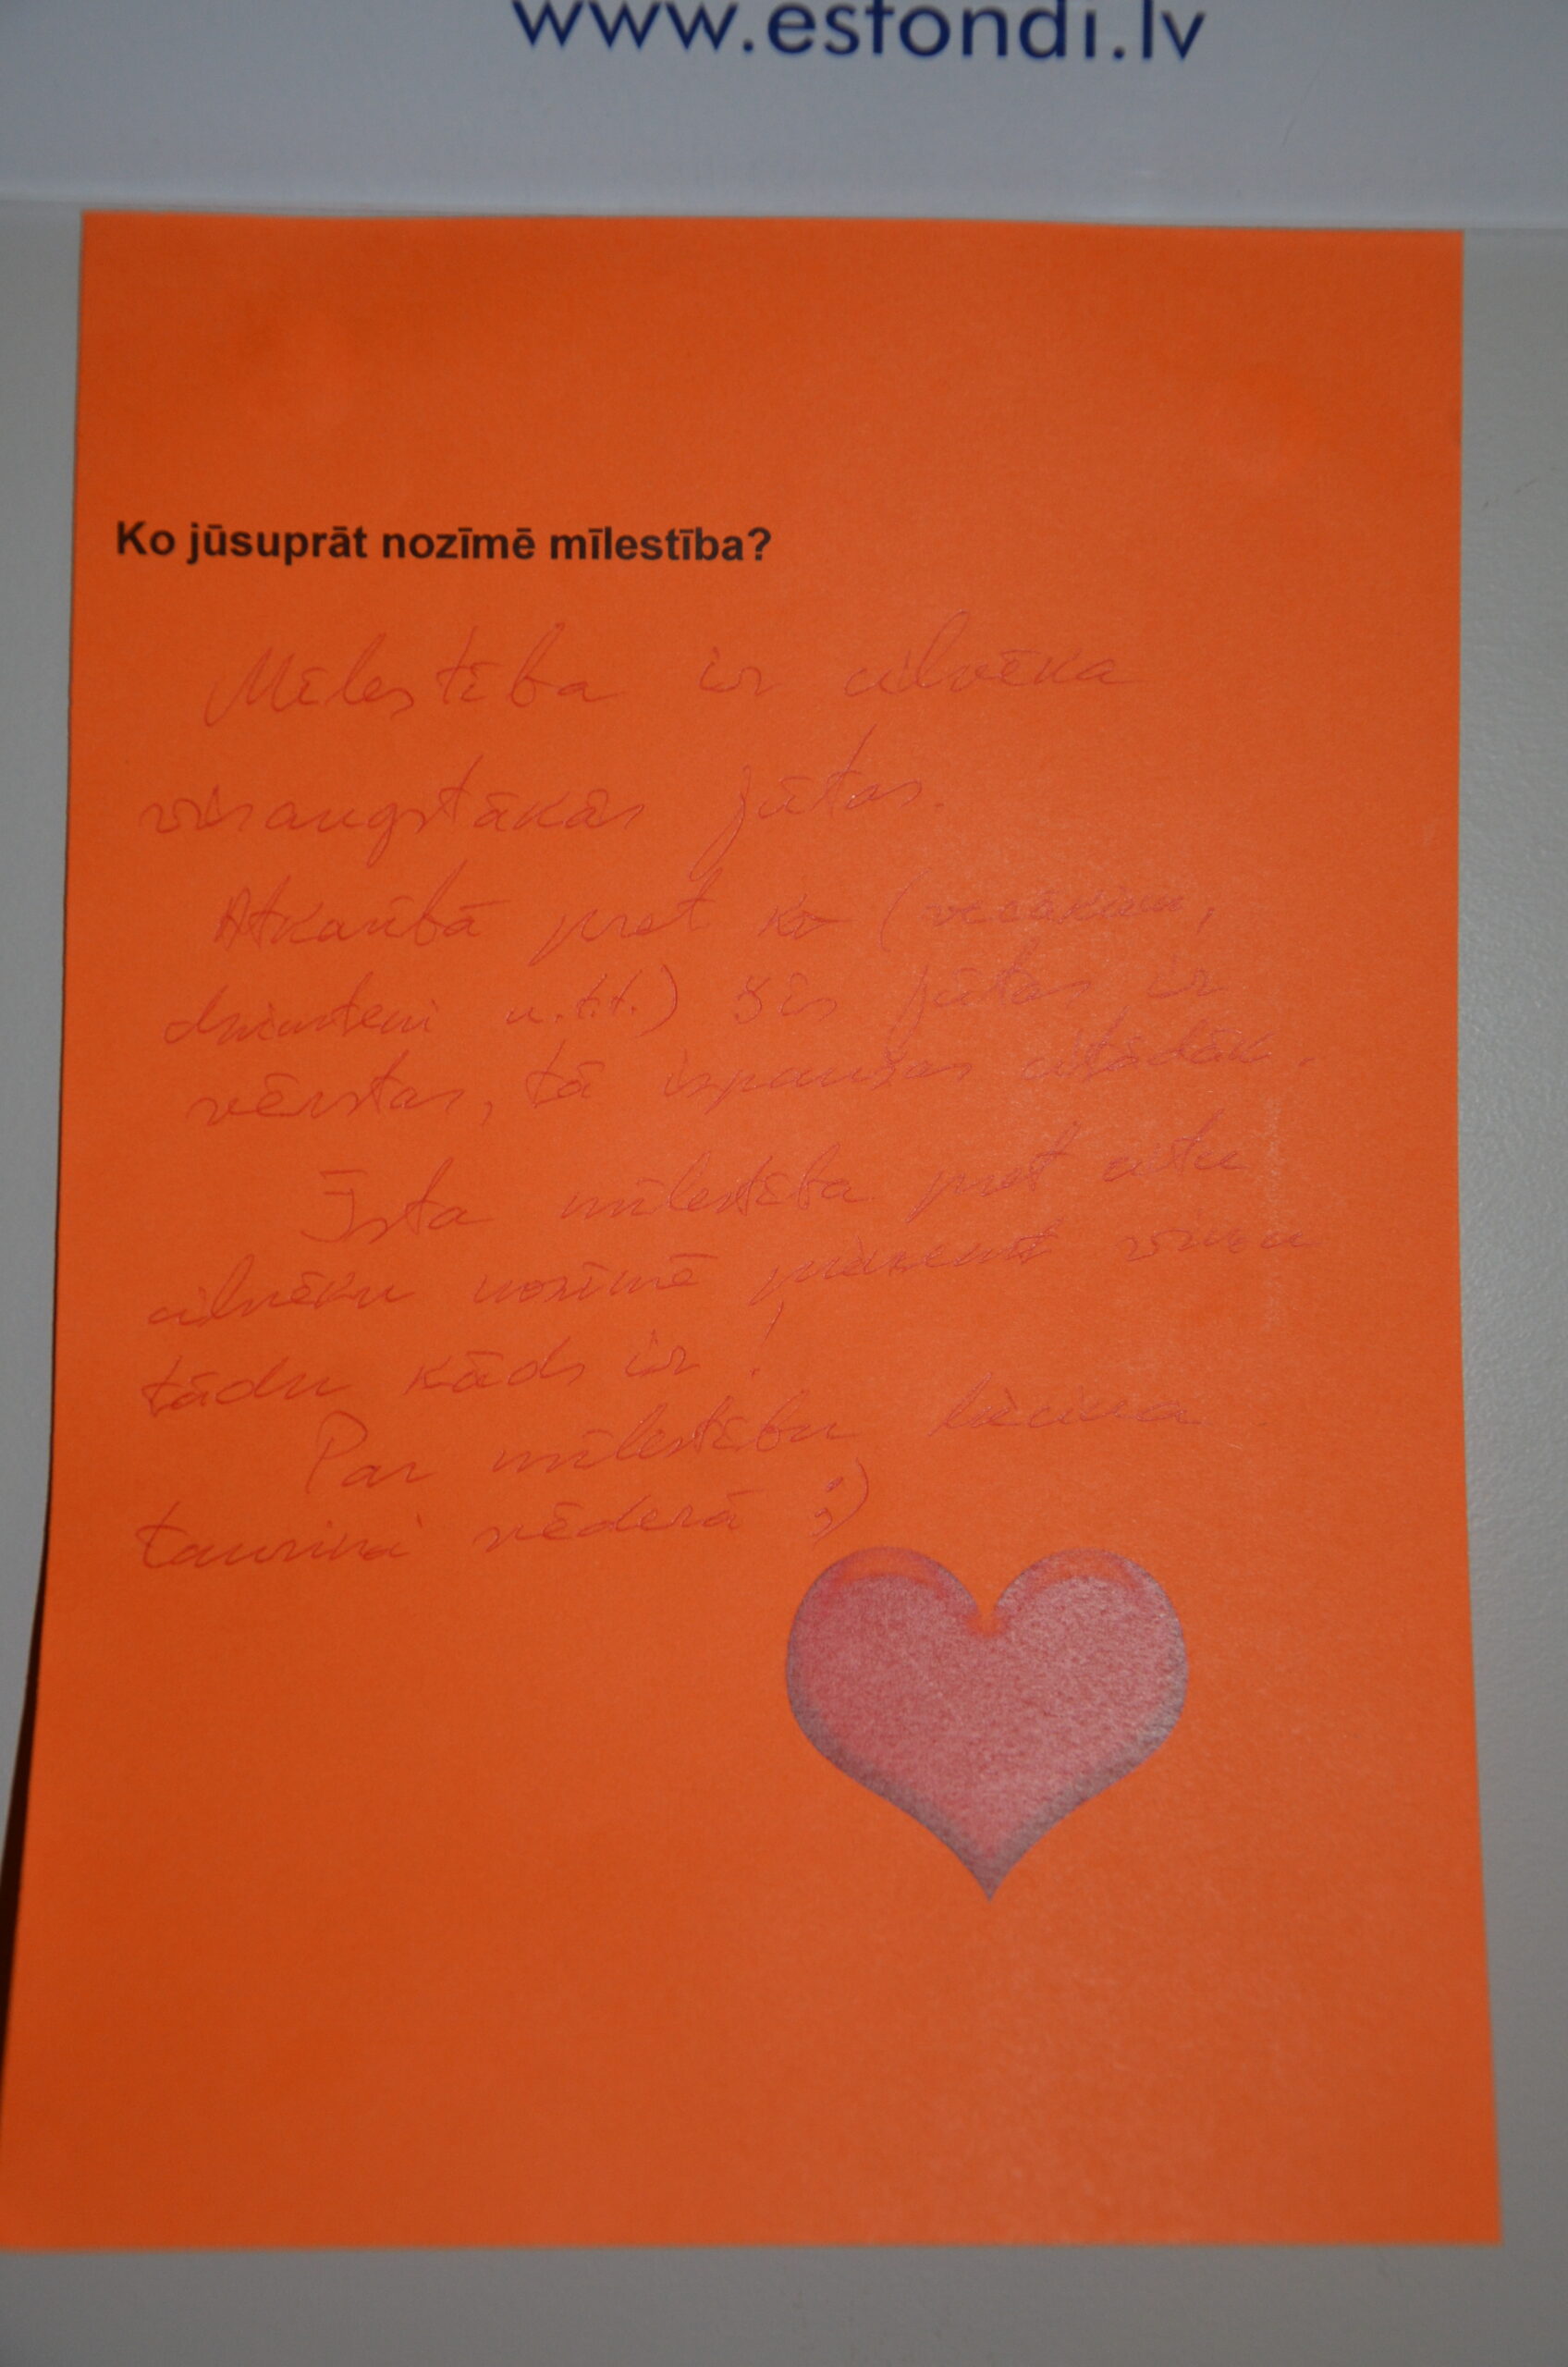 www.esfondi.lv
Ko jūsuprāt nozīmē mīlestība?
Mīlestība ir cilvēka
visaugstākās jūtas.
Atkarībā pret ko (vecākiem,
dzimteni u.t.t.) šīs jūtas ir
vērstas, tā izpaužas citādāk.
Īsta mīlestība pret citu
cilvēku nozīmē pieņemt viņu
tādu kāds ir!
Par mīlestību liecina
tauriņi vēderā ;)